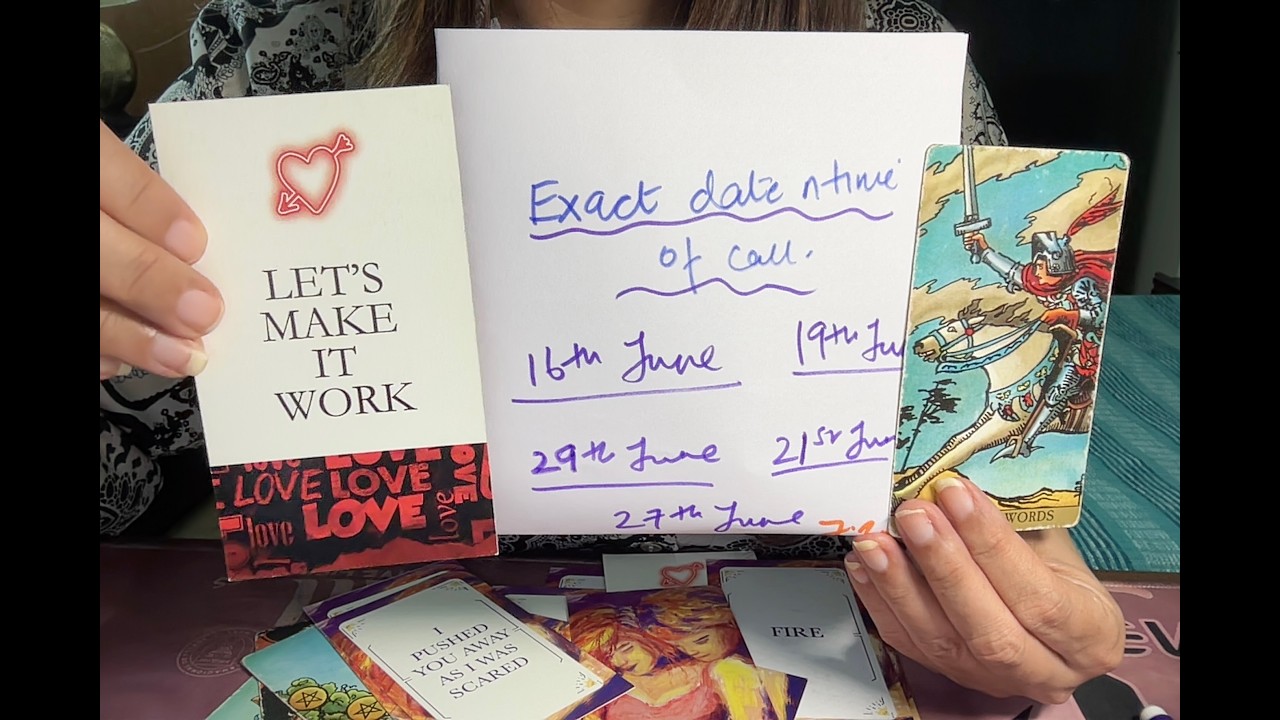 LET'S
MAKE
IT
WORK
LOVE
LOVE LOVE
love LOVE love
Exact date n time
of call.
16th June 19th Ju
29th June 21st Jun
27th June
WORDS
I
PUSHED
YOU AWAY
AS I WAS
SCARED
FIRE